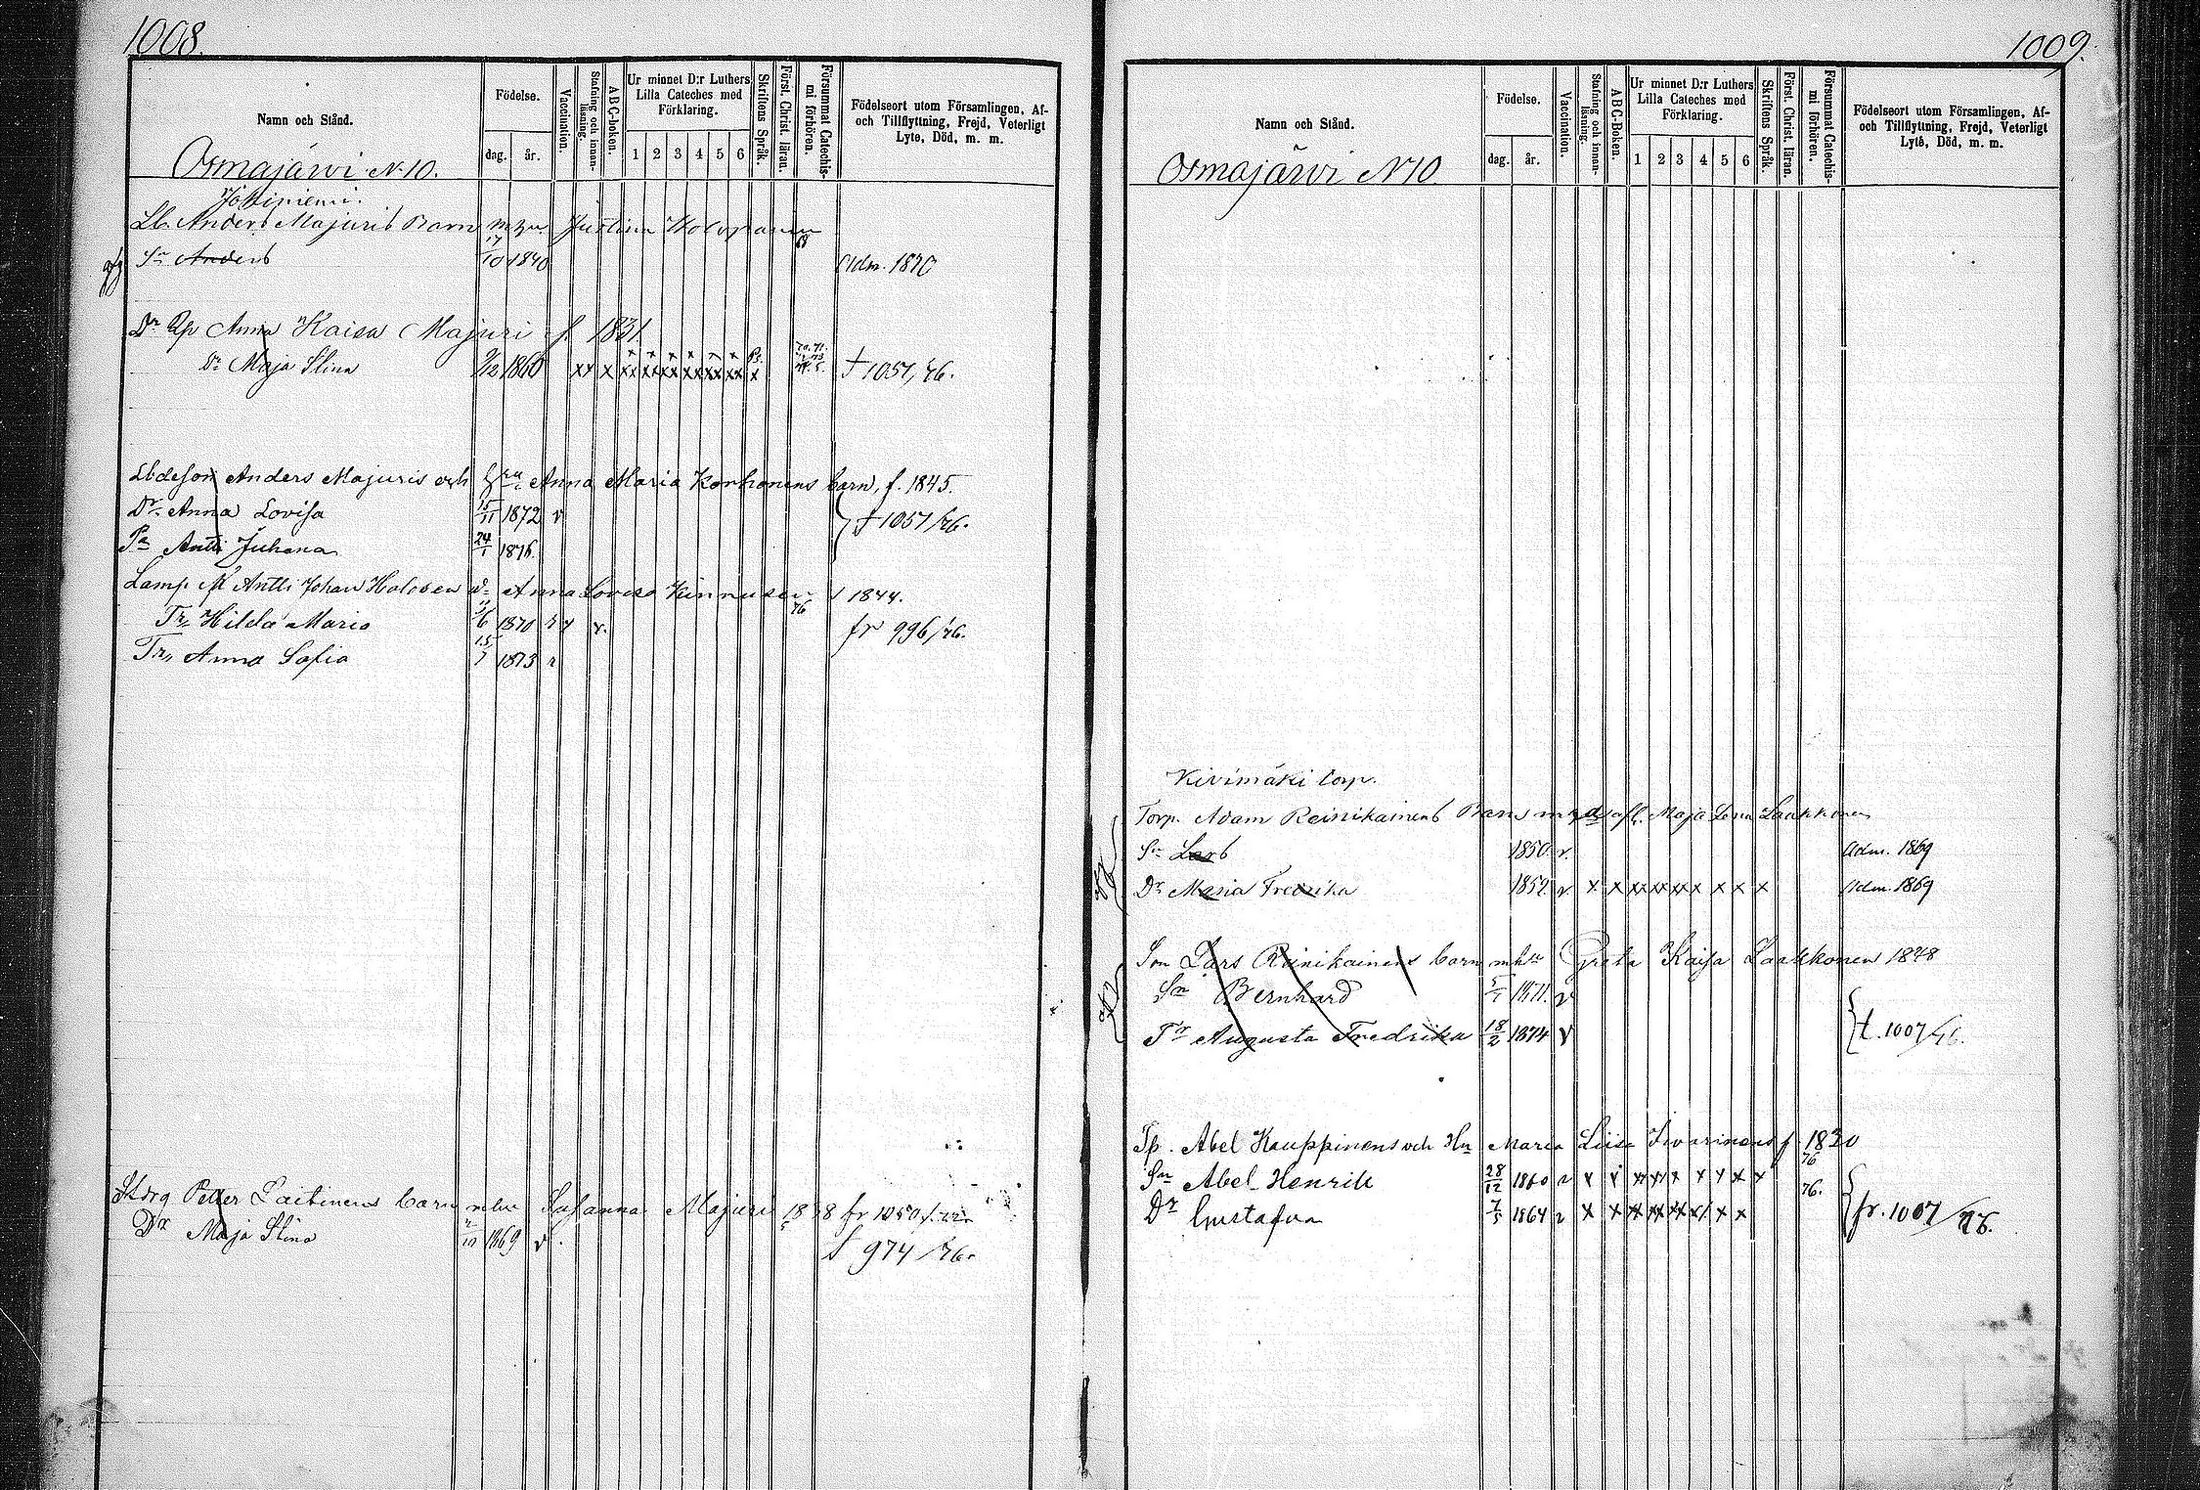 1008.
Namn och Stånd.
Födelse.
dag. år.
Vaccination.
Stafning och innan-läsning.
ABC-boken.
Ur minnet D:r Luthers Lilla Cateches med Förklaring.
1 2 3 4 5 6
Skriftens Språk.
Först. Christ. läran.
Försummat Catechis-mi förhören.
Födelseort utom Församlingen, Af-
och Tillflyttning, Frejd, Veterligt
Lyte, Död, m. m.
Osmajärvi N 10.
Anders Majuris Barn Justina Holopainen
Sn Anders 17/10 1840 Adm. 1870
Dr Anna Kaisa Majuri f. 1831
Dr Maja Stina 9/12 1860 xx x xx xx xx xx xx xx x 1051/76.
Anders Majuris och Anna Maria Korhonens barn, f. 1845.
Dr Anna Lovisa 15/11 1872 v 1057/76.
Antti Juhana 24/1 1876
Antti Johan Holosen Anna Lovisa Kinnusen 1844.
Tr Hilda Maria 1870 fr 996/76.
Tr Anna Sofia 1873
Petter Laitinens barn Susanna Majuri 1838 fr 1050
Dr Maja Stina 1869 v 974/76.
1009.
Namn och Stånd.
Födelse.
dag. år.
Vaccination.
Stafning och innan-läsning.
ABC-Boken.
Ur minnet D:r Luthers Lilla Cateches med Förklaring.
1 2 3 4 5 6
Skriftens Språk.
Först. Christ. läran.
Försummat Catechis-mi förhören.
Födelseort utom Församlingen, Af-
och Tillflyttning, Frejd, Veterligt
Lyte, Död, m. m.
Osmajärvi N 10.
Kivimäki torp.
Torp. Adam Reinikainens Barn Maja Lena Laakkonen
Sn Lars 1850 v. Adm. 1869
Dr Maria Fredrika 1852 v x x xx xx xx x x x x Adm. 1869
Son Lars Reinikainens barn Greta Kaisa Laakkonen 1848
Sn Bernhard 5/1 1871. v
Tr Augusta Fredrika 18/2 1874 v t. 1007/76.
Tp. Abel Kauppinens och Hu Maria Liisa f. 1830
Sn Abel Henrik 28/12 1860 76
Dr Gustafva 7/5 1864 76. fr. 1007/76.